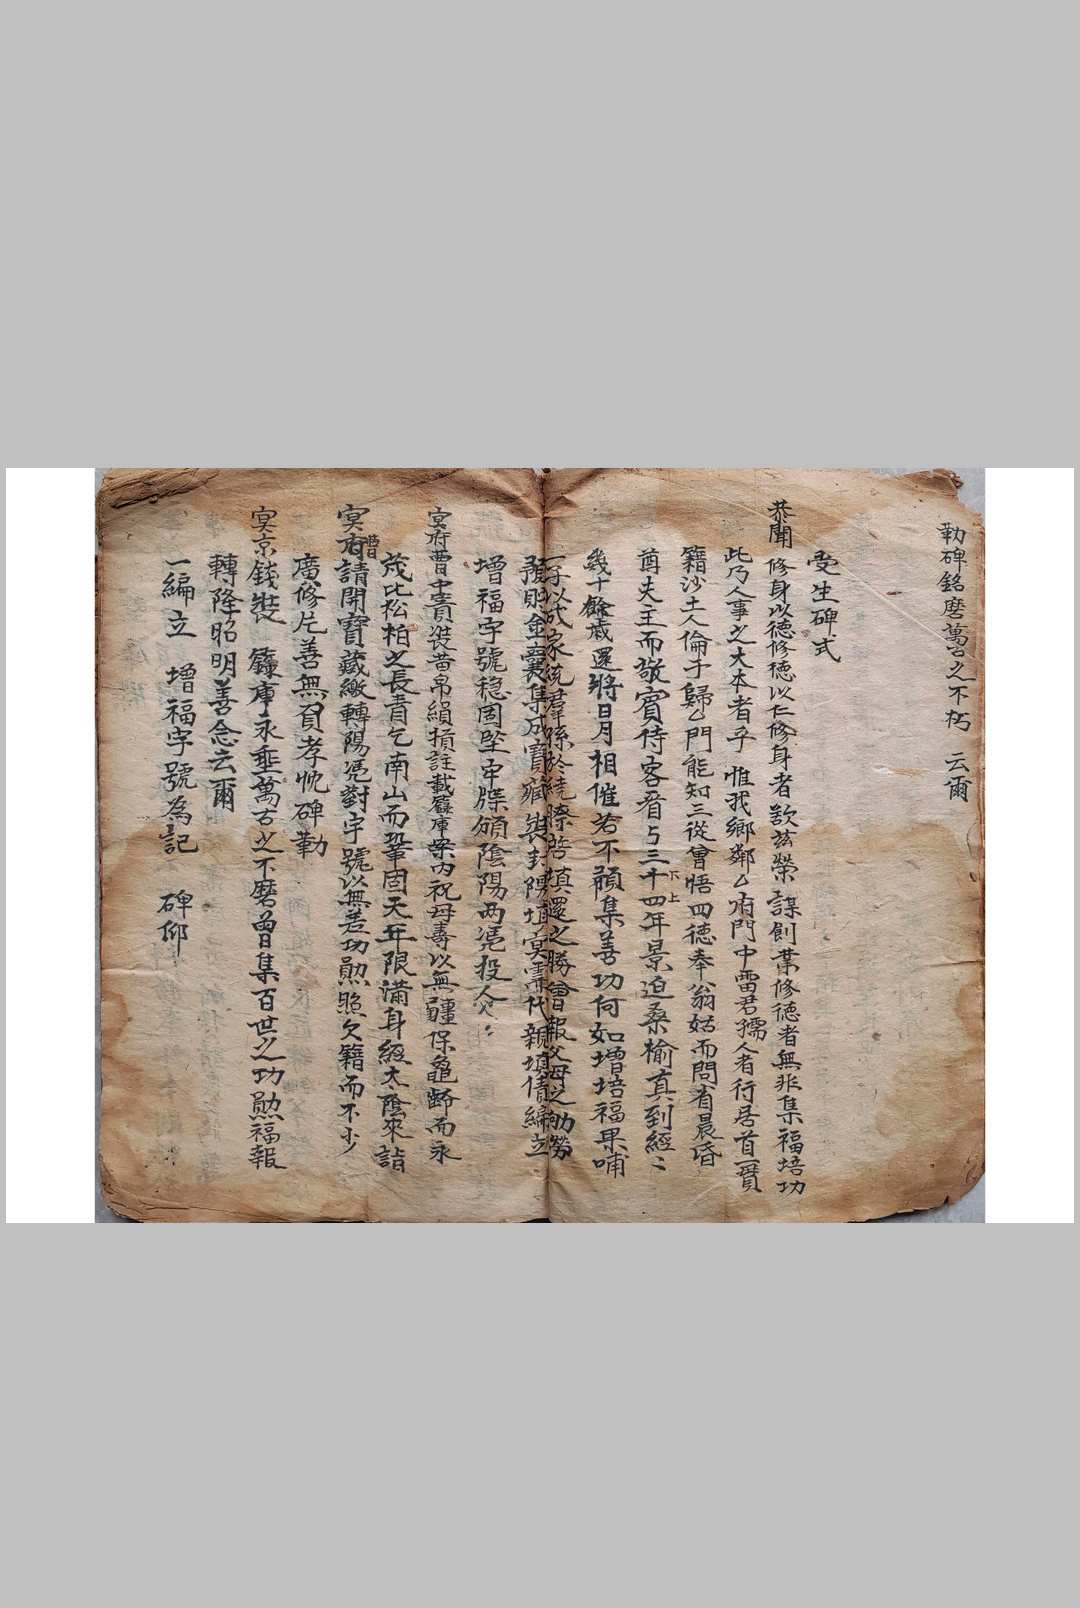 勒碑銘磨萬古之不朽 云爾
受生碑式
恭聞 修身以德修德以仁修身者歆茲榮謀創業修德者無非集福培功
此乃人事之大本者乎 惟我鄉鄰厶府門中雷君孺人者行居首一實
籍沙土人倫于歸厶門能知三從會悟四德奉翁姑而問省晨昏
酋夫主而敬賓待客看与三十四年景迫桑榆真到經〻
下上
幾十餘歲還將日月相催若不預集善功何如增培福果哺
子以成家統群孫於繞膝啓填還之勝會報父母之劬勞
預則金囊集成寶藏裝封預填冥需代親填債編立
增福字號穩固堅牢牒頒陰陽两凴投人〻
冥府曹中賣裝黃帛緝損註載籙庫案內祝母壽以無疆保龜齡而永
茂比松柏之長青乞南山而鞏固天年限滿身經太陰來詣
冥府曹請開寶藏繳轉陽凴對字號以無差功勲照欠籍而不少
廣修片善無負孝忱碑勒
冥京錢裝 籙庫永垂萬古之不磨曾集百世之功勲福報
轉降昭明善念云爾
一編立 增福字號為記 碑仰